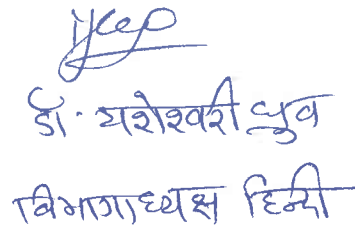 डॉ. यशेश्वरी ध्रुव
विभागाध्यक्ष हिन्दी